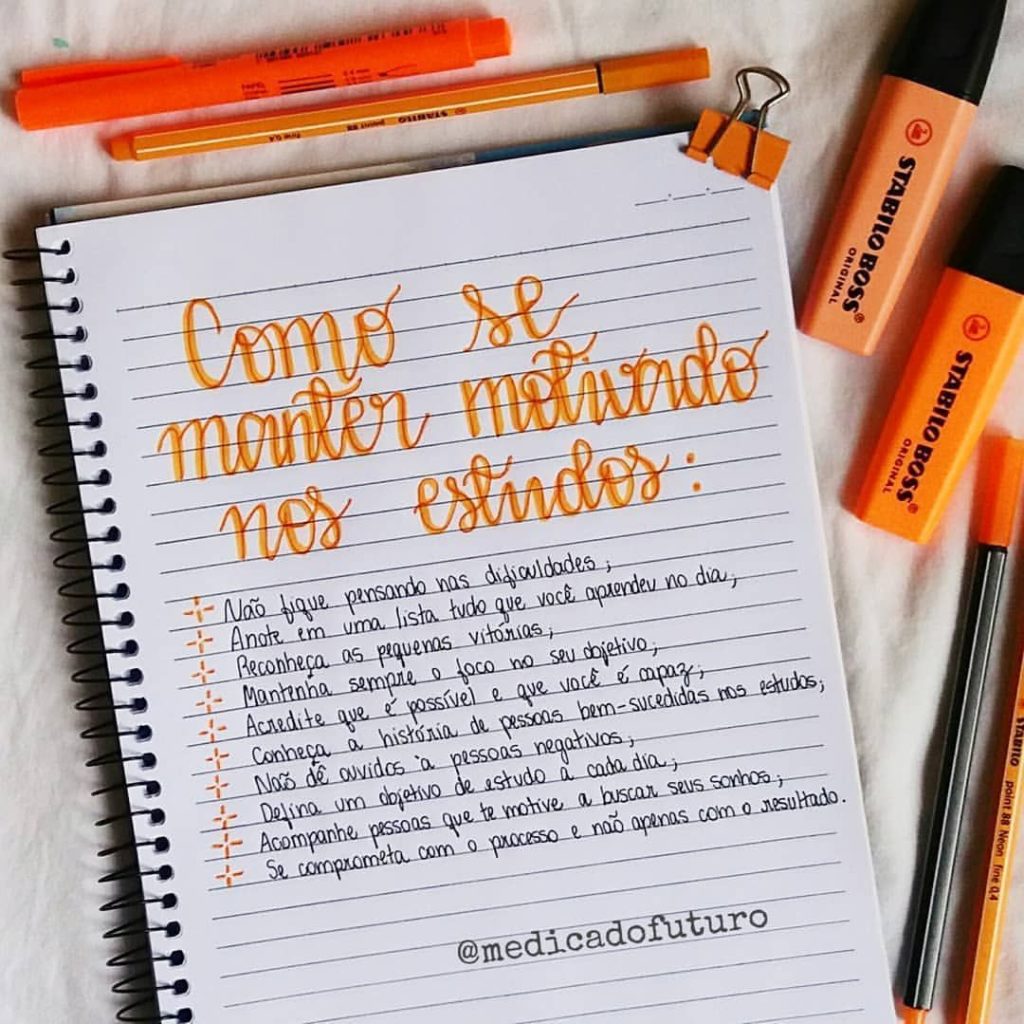 Como se
manter motivado
nos estudos:
Não fique pensando nas dificuldades;
Anote em uma lista tudo que você aprendeu no dia;
Reconheça as pequenas vitórias;
Mantenha sempre o foco no seu objetivo;
Acredite que é possível e que você é capaz;
Conheça a história de pessoas bem-sucedidas nos estudos;
Não dê ouvidos à pessoas negativos;
Defina um objetivo de estudo a cada dia;
Acompanhe pessoas que te motive a buscar seus sonhos;
Se comprometa com o processo e não apenas com o resultado.
@medicadofuturo
STABILO BOSS®
ORIGINAL
STABILO BOSS®
ORIGINAL
STABILO point 88 fine 0,4
STABILO point 88 Neon fine 0,4